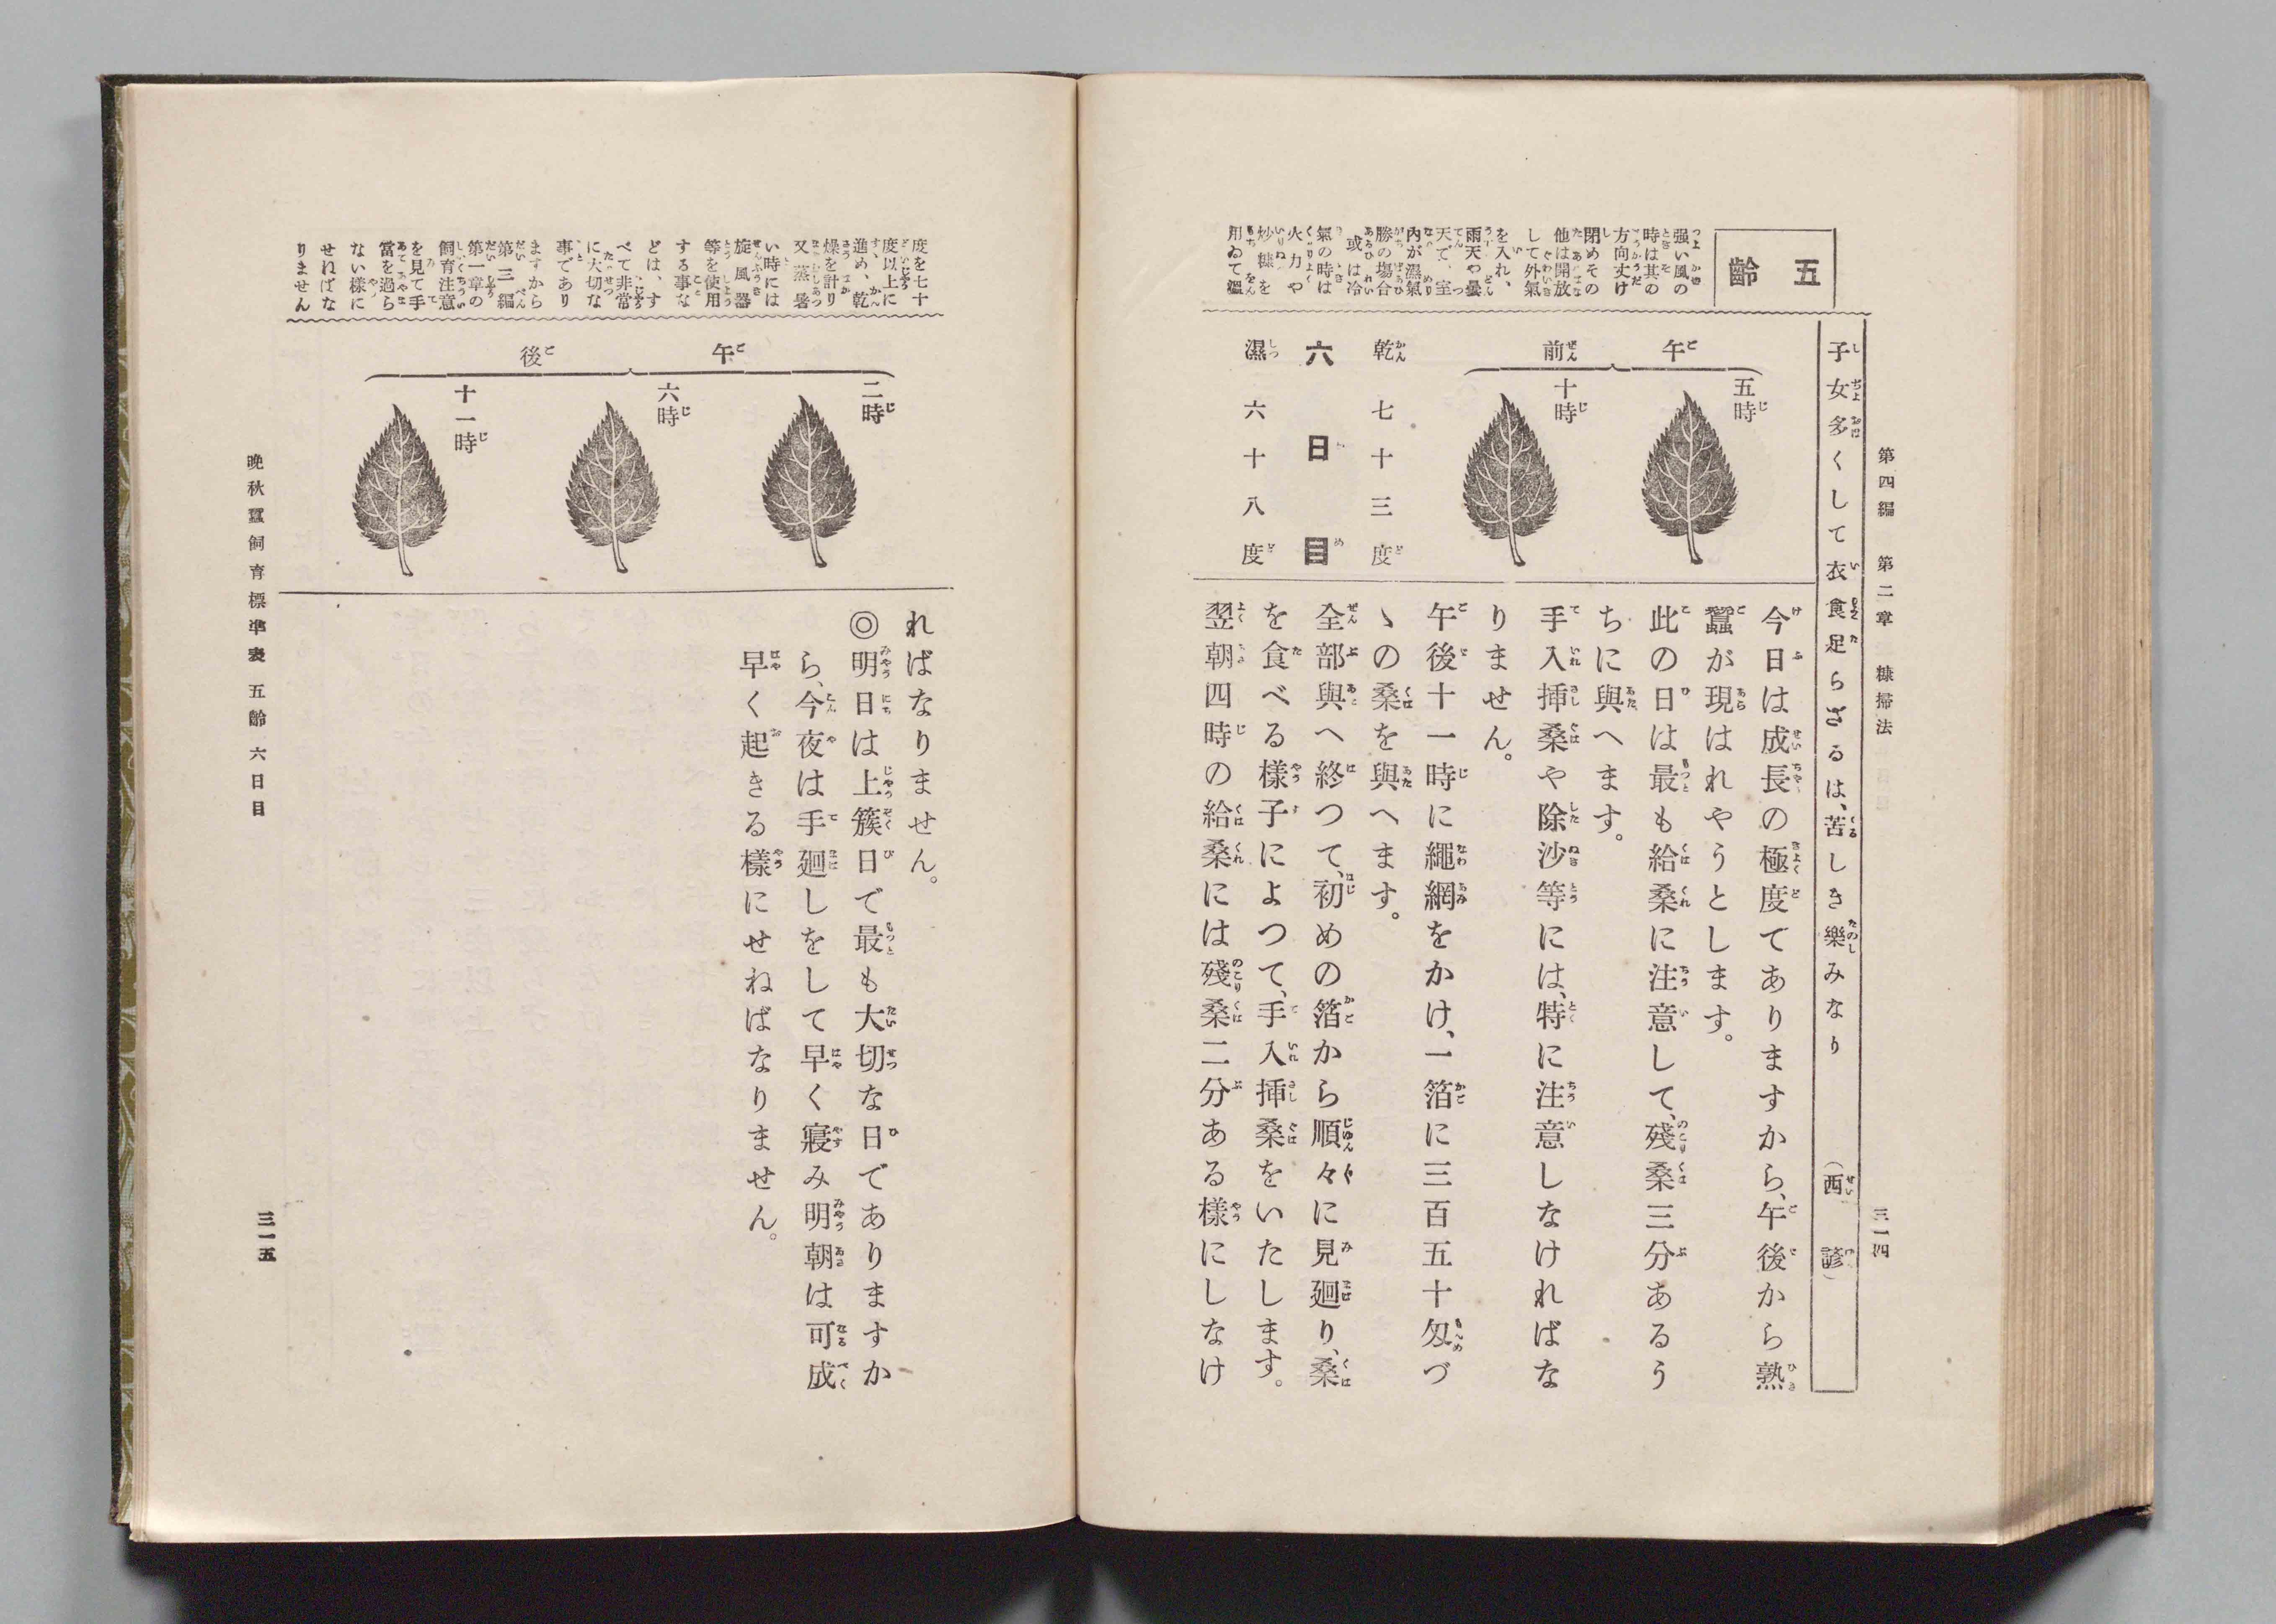 第四編 第二章 糠掃法
三一四
子女多くして衣食足らざるは、苦しき樂みなり (西諺)
五齡
强い風の
時は其の
方向丈け
閉めその
他は開放
して外氣
を入れ、
雨天や曇
天で、室
內が濕氣
勝の塲合
或は冷
氣の時は
火力や
炒糠を
用ゐて溫
午前
五時
十時
乾 七十三度
六日目
濕 六十八度
今日は成長の極度てありますから、午後から熟
蠶が現はれやうとします。
此の日は最も給桑に注意して、殘桑三分あるう
ちに與へます。
手入揷桑や除沙等には、特に注意しなければな
りません。
午後十一時に繩網をかけ、一箔に三百五十匁づ
ゝの桑を與へます。
全部與へ終つて、初めの箔から順々に見廻り、桑
を食べる樣子によつて、手入揷桑をいたします。
翌朝四時の給桑には殘桑二分ある樣にしなけ
度を七十
度以上に
進め、乾
燥を計り
又蒸暑
い時には
旋風器
等を使用
する事な
どは、す
べて非常
に大切な
事であり
ますから
第三編
第一章の
飼育注意
を見て手
當を過ら
ない樣に
せねばな
りません
午後
二時
六時
十一時
ればなりません。
◎明日は上簇日で最も大切な日でありますか
ら、今夜は手廻しをして早く寢み明朝は可成
早く起きる樣にせねばなりません。
晩秋蠶飼育標準表 五齡 六日目
三一五